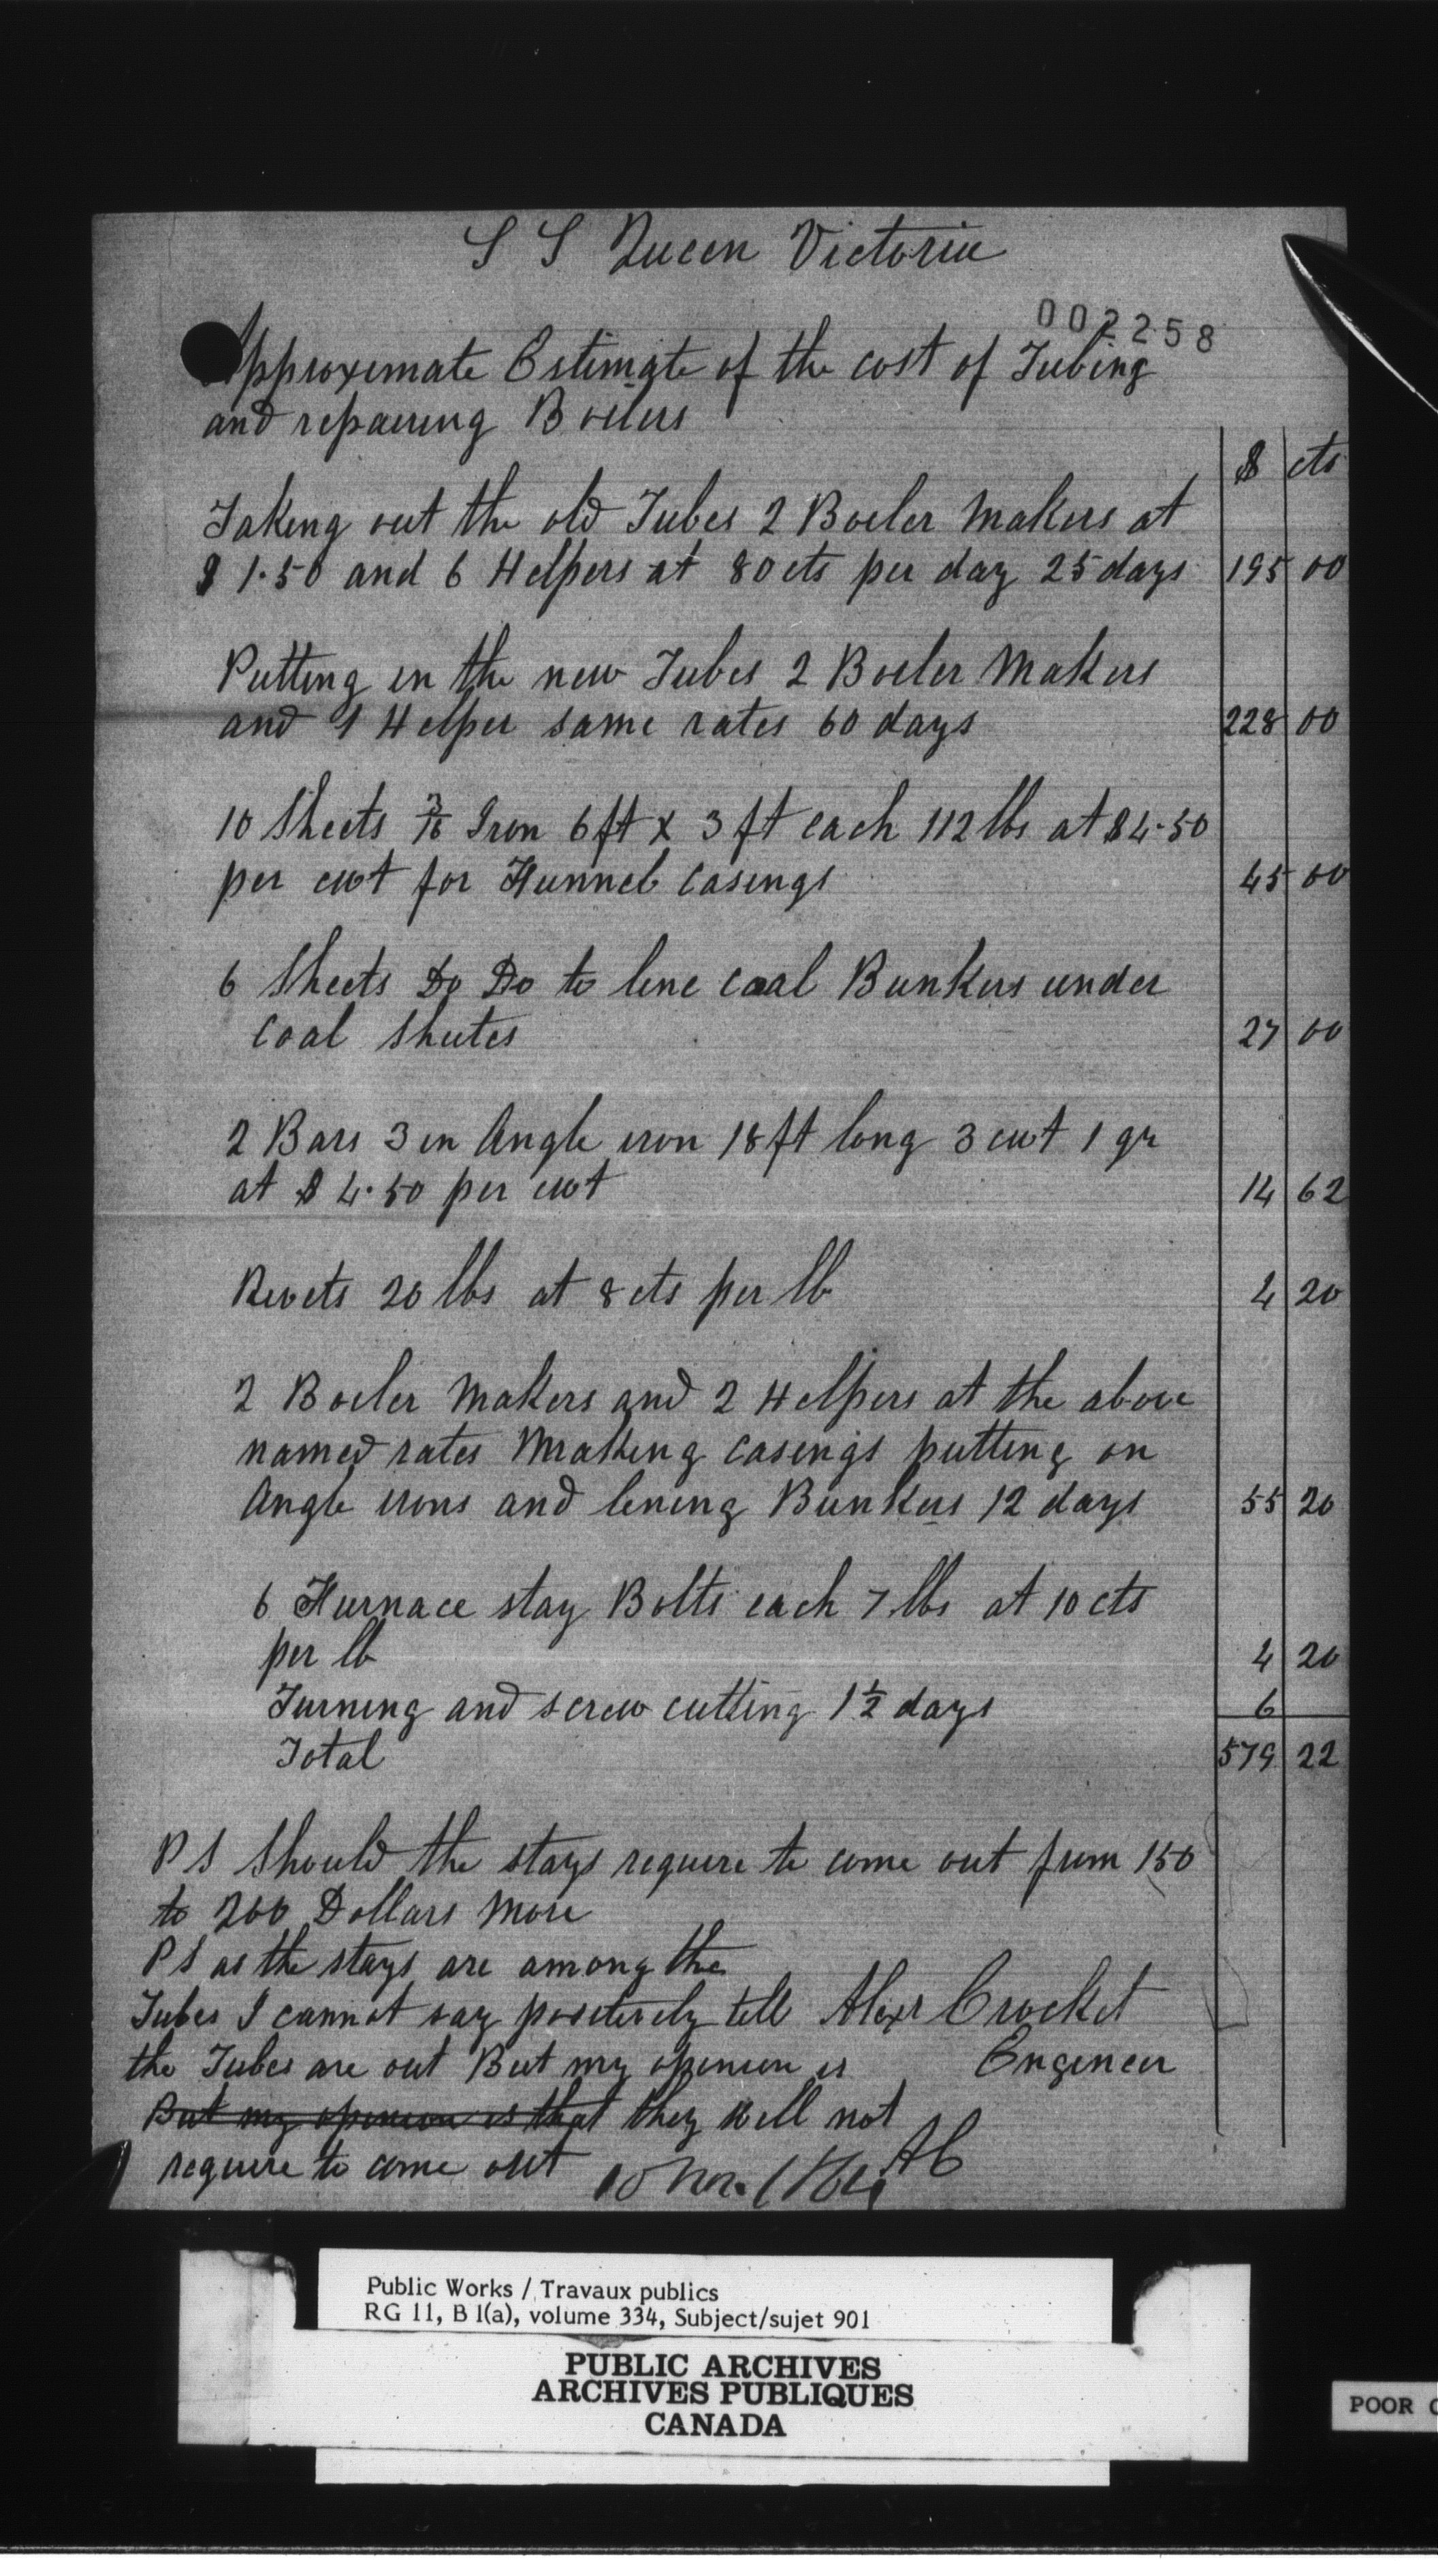 S S Queen Victoria
002258
Approximate Estimate of the cost of Tubing
and repairing Boilers
$ cts
Taking out the old Tubes 2 Boiler Makers at
$ 1.50 and 6 Helpers at 80 cts per day 25 days 195 00
Putting in the new Tubes 2 Boiler Makers
and 1 Helper same rates 60 days 228 00
10 Sheets 3/16 Iron 6 ft x 3 ft each 112 lbs at $4.50
per cwt for Funnel Casings 45 00
6 Sheets Do Do to line Coal Bunkers under
Coal Shutes 27 00
2 Bars 3 in Angle iron 18 ft long 3 cwt 1 qr
at $ 4.50 per cwt 14 62
Rivets 20 lbs at 8 cts per lb 4 20
2 Boiler Makers and 2 Helpers at the above
named rates Making Casings putting on
Angle irons and lining Bunkers 12 days 55 20
6 Furnace stay Bolts each 7 lbs at 10 cts
per lb 4 20
Turning and screw cutting 1 1/2 days 6
Total 579 22
PS Should the stays require to come out from 150
to 200 Dollars More
PS as the stays are among the
Tubes I cannot say positively till Alexr Crocket
the Tubes are out But my opinion is Engineer
But my opinion is that they will not
require to come out AC
10 Nov.
Public Works / Travaux publics
RG 11, B 1(a), volume 334, Subject/sujet 901
PUBLIC ARCHIVES
ARCHIVES PUBLIQUES
CANADA
POOR